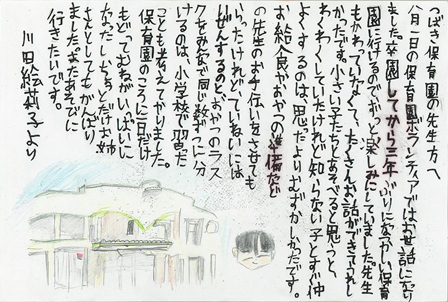 つばき保育園の先生方へ
八月一日の保育園ボランティアではお世話になり
ました。卒園してから三年ぶりになつかしい保育
園に行けるのでずっと楽しみにしていました。先生
もかわっていなくて、たくさんお話ができてうれし
かったです。小さい子たちとあそべると思うと、
わくわくしていたけれど知らない子とすぐ仲
よくするのは、思ったよりむずかしかったです。
お給食やおやつの準備など
の先生のお手伝いをさせても
らったけれど、ていねいには
いぜんするのと、おやつのラス
クをみなで同じ数ずつに分
けるのは、小学校で習った
ことも考えてがんばりました。
保育園のころに一日だけ
もどってむねがいっぱいに
なったし、ちょっとだけお姉
さんとしてもがんばり
ました。またあそびに
行きたいです。
川田絵莉子より